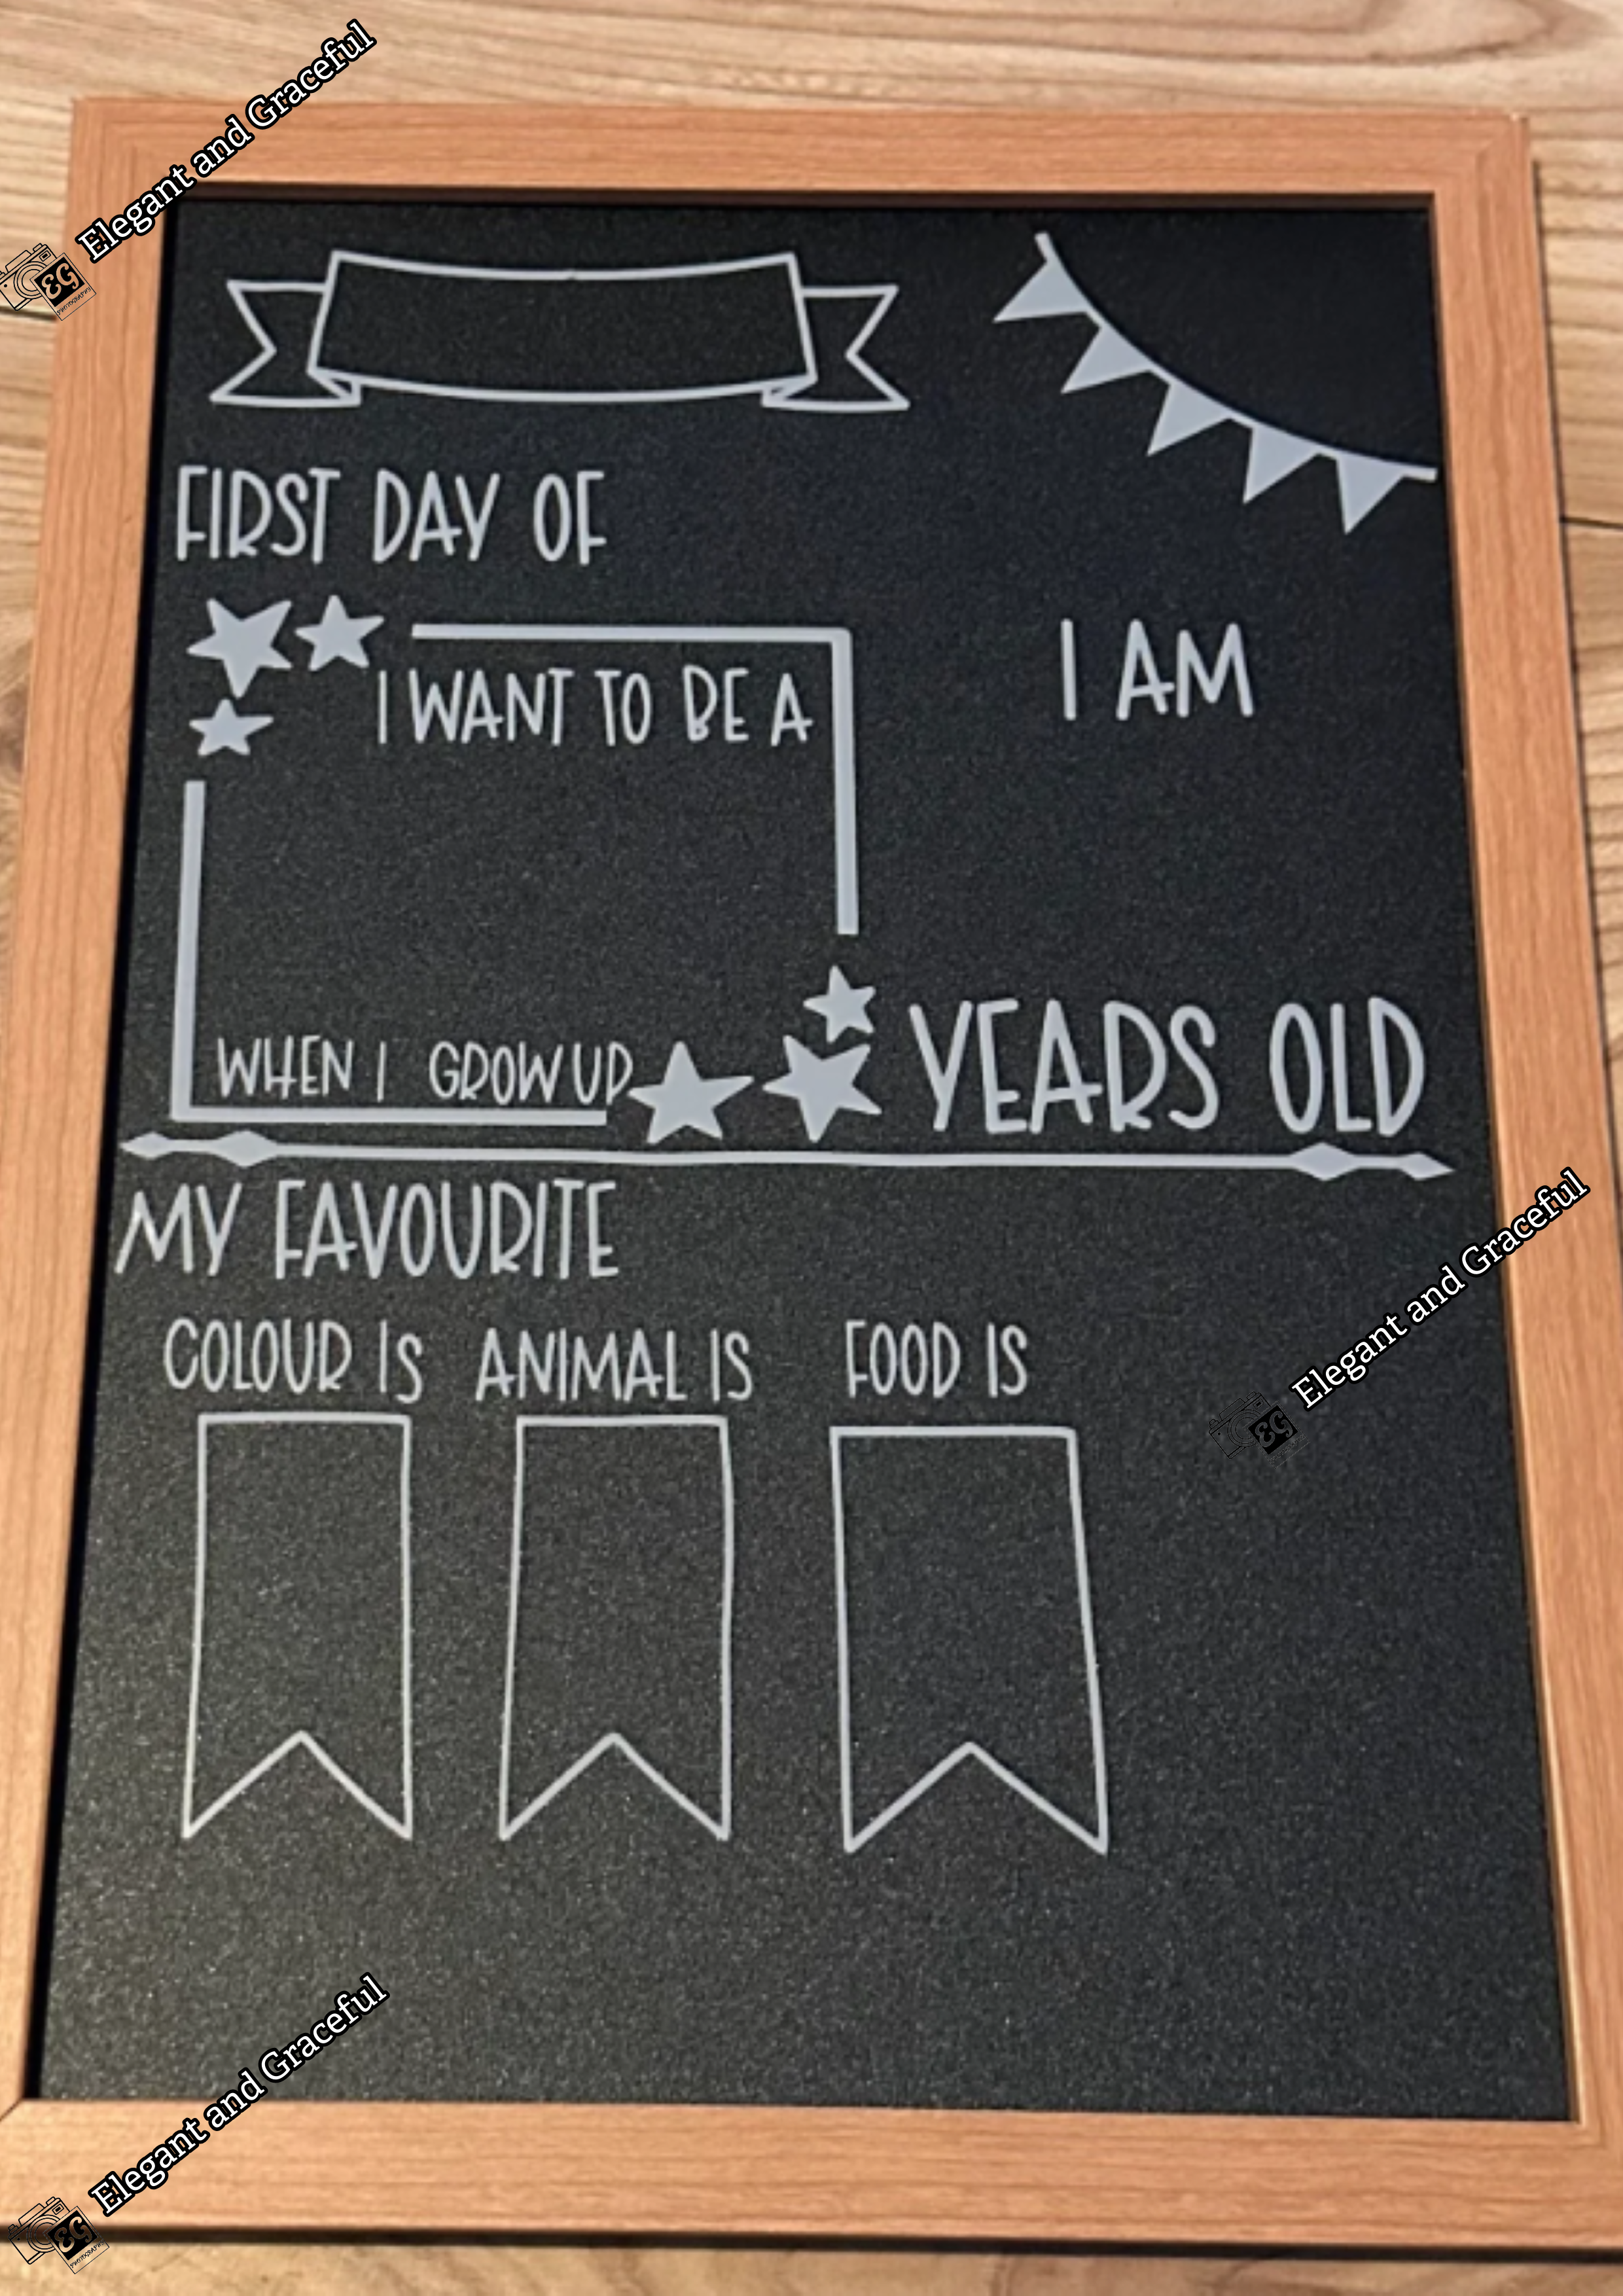 Elegant and Graceful
EG
FIRST DAY OF
I WANT TO BE A
I AM
WHEN I GROW UP
YEARS OLD
MY FAVOURITE
COLOUR IS
ANIMAL IS
FOOD IS
Elegant and Graceful
EG
Elegant and Graceful
EG